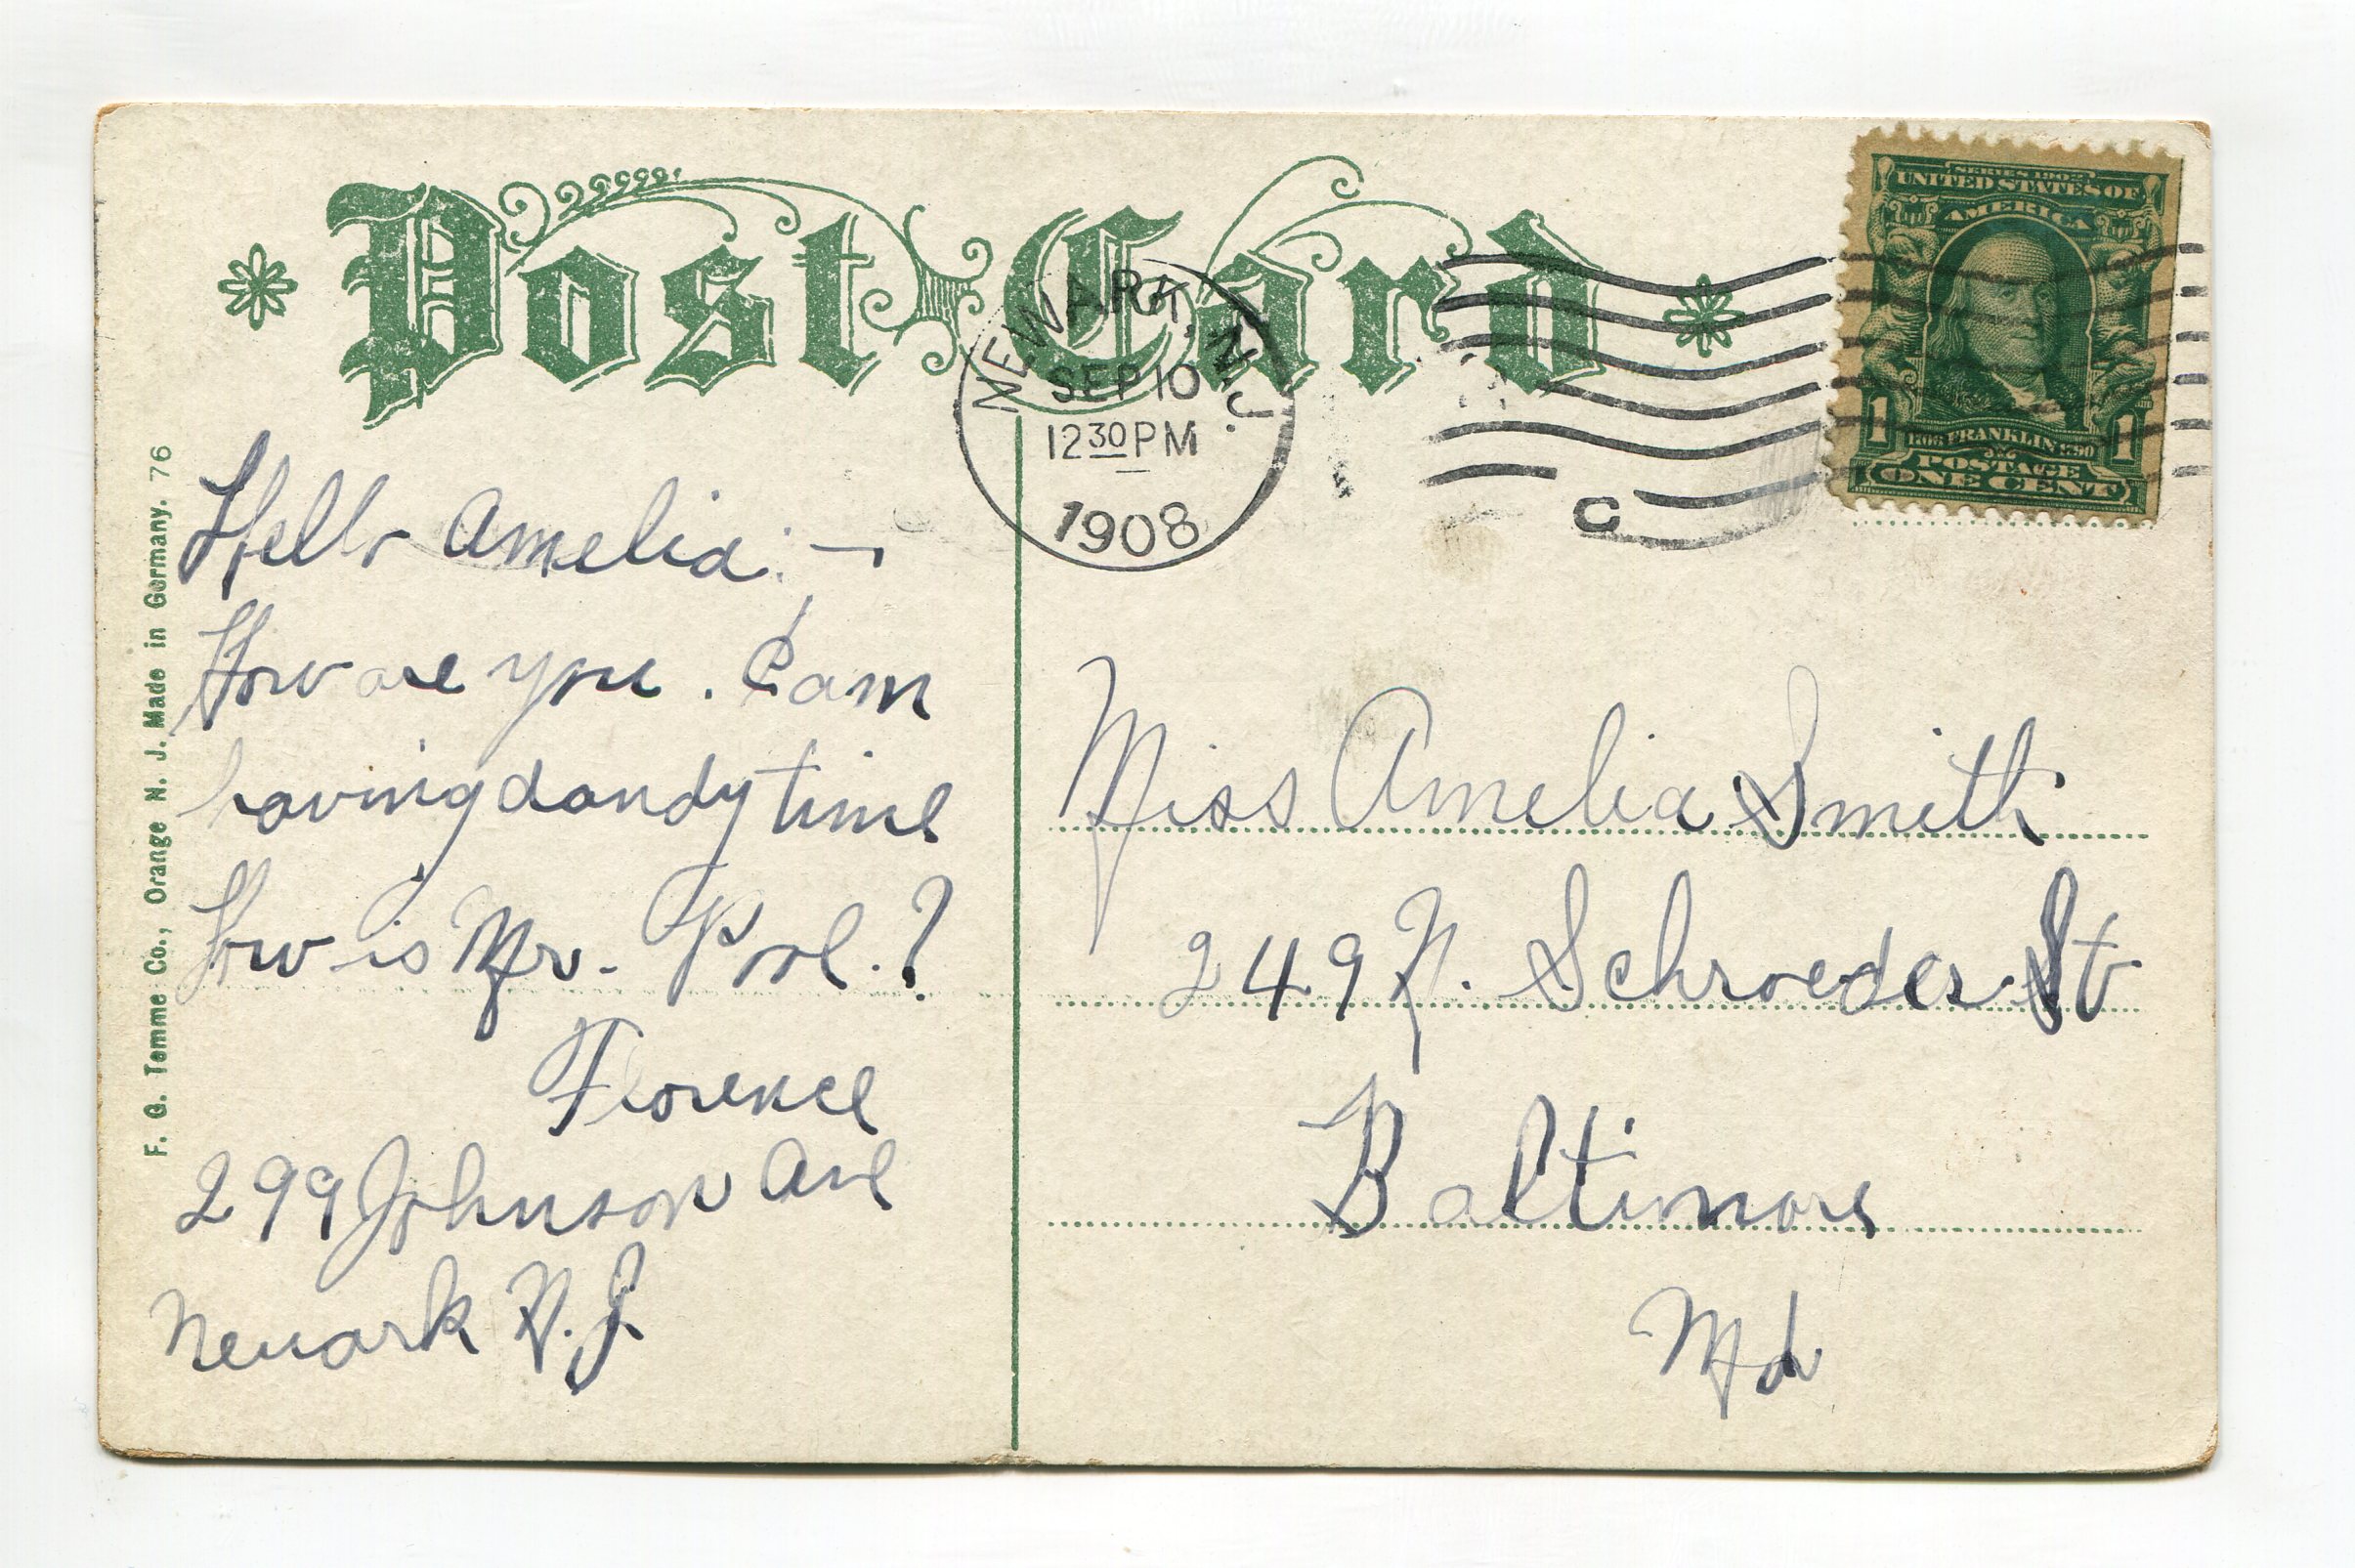 Post Card
NEWARK, N.J.
SEP 10
12 30 PM
1908
C
SERIES 1902
UNITED STATES OF
AMERICA
1706 FRANKLIN 1790
1 1
POSTAGE
ONE CENT
F. G. Temme Co., Orange N. J. Made in Germany. 76
Hello Amelia: —
How are you. I am
having dandy time
How is Mr. Pool.?
Florence
299 Johnson Ave
Newark N.J.
Miss Amelia Smith
249 N. Schroeder St
Baltimore
Md